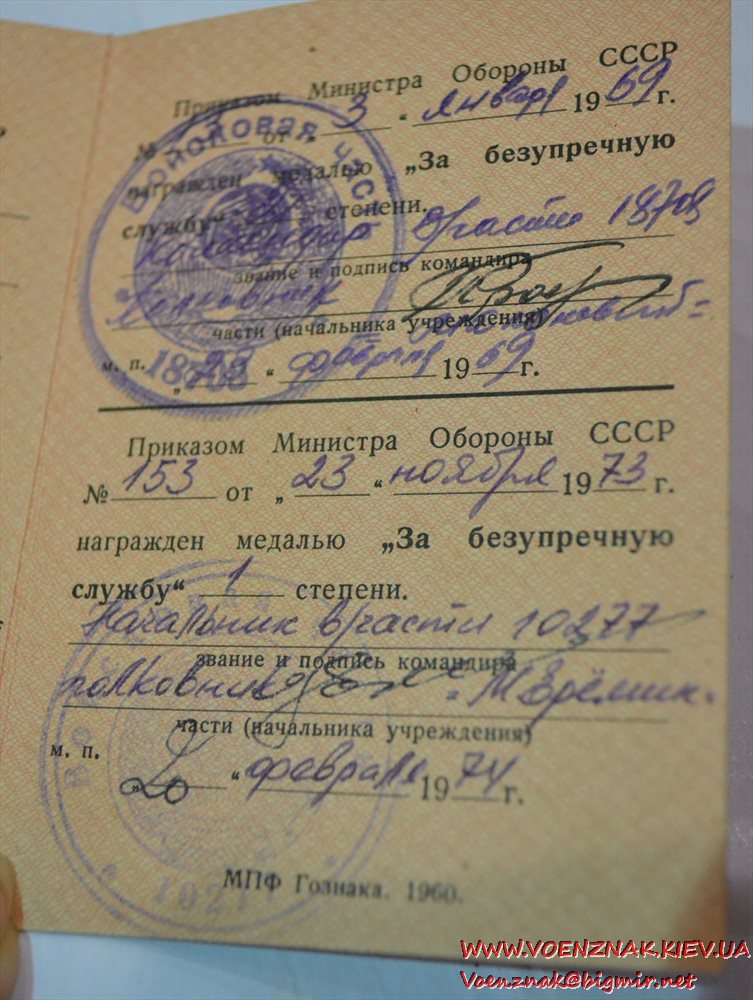 Приказом Министра Обороны СССР
№ 13 от „ 3 “ января 1969 г.
награжден медалью „За безупречную
службу“ степени.
Командир в/части 18708
звание и подпись командира
Полковник
части (начальника учреждения)
м. п. „23“ февраля 1969 г.
Войсковая част
Приказом Министра Обороны СССР
№ 153 от „ 23 “ ноября 1973 г.
награжден медалью „За безупречную
службу“ 1 степени.
Начальник в/части 10277
звание и подпись командира
полковник М Ерёмин
части (начальника учреждения)
м. п.
„20“ февраля 1974 г.
МПФ Гознака. 1960.
WWW.VOENZNAK.KIEV.UA
Voenznak@bigmir.net